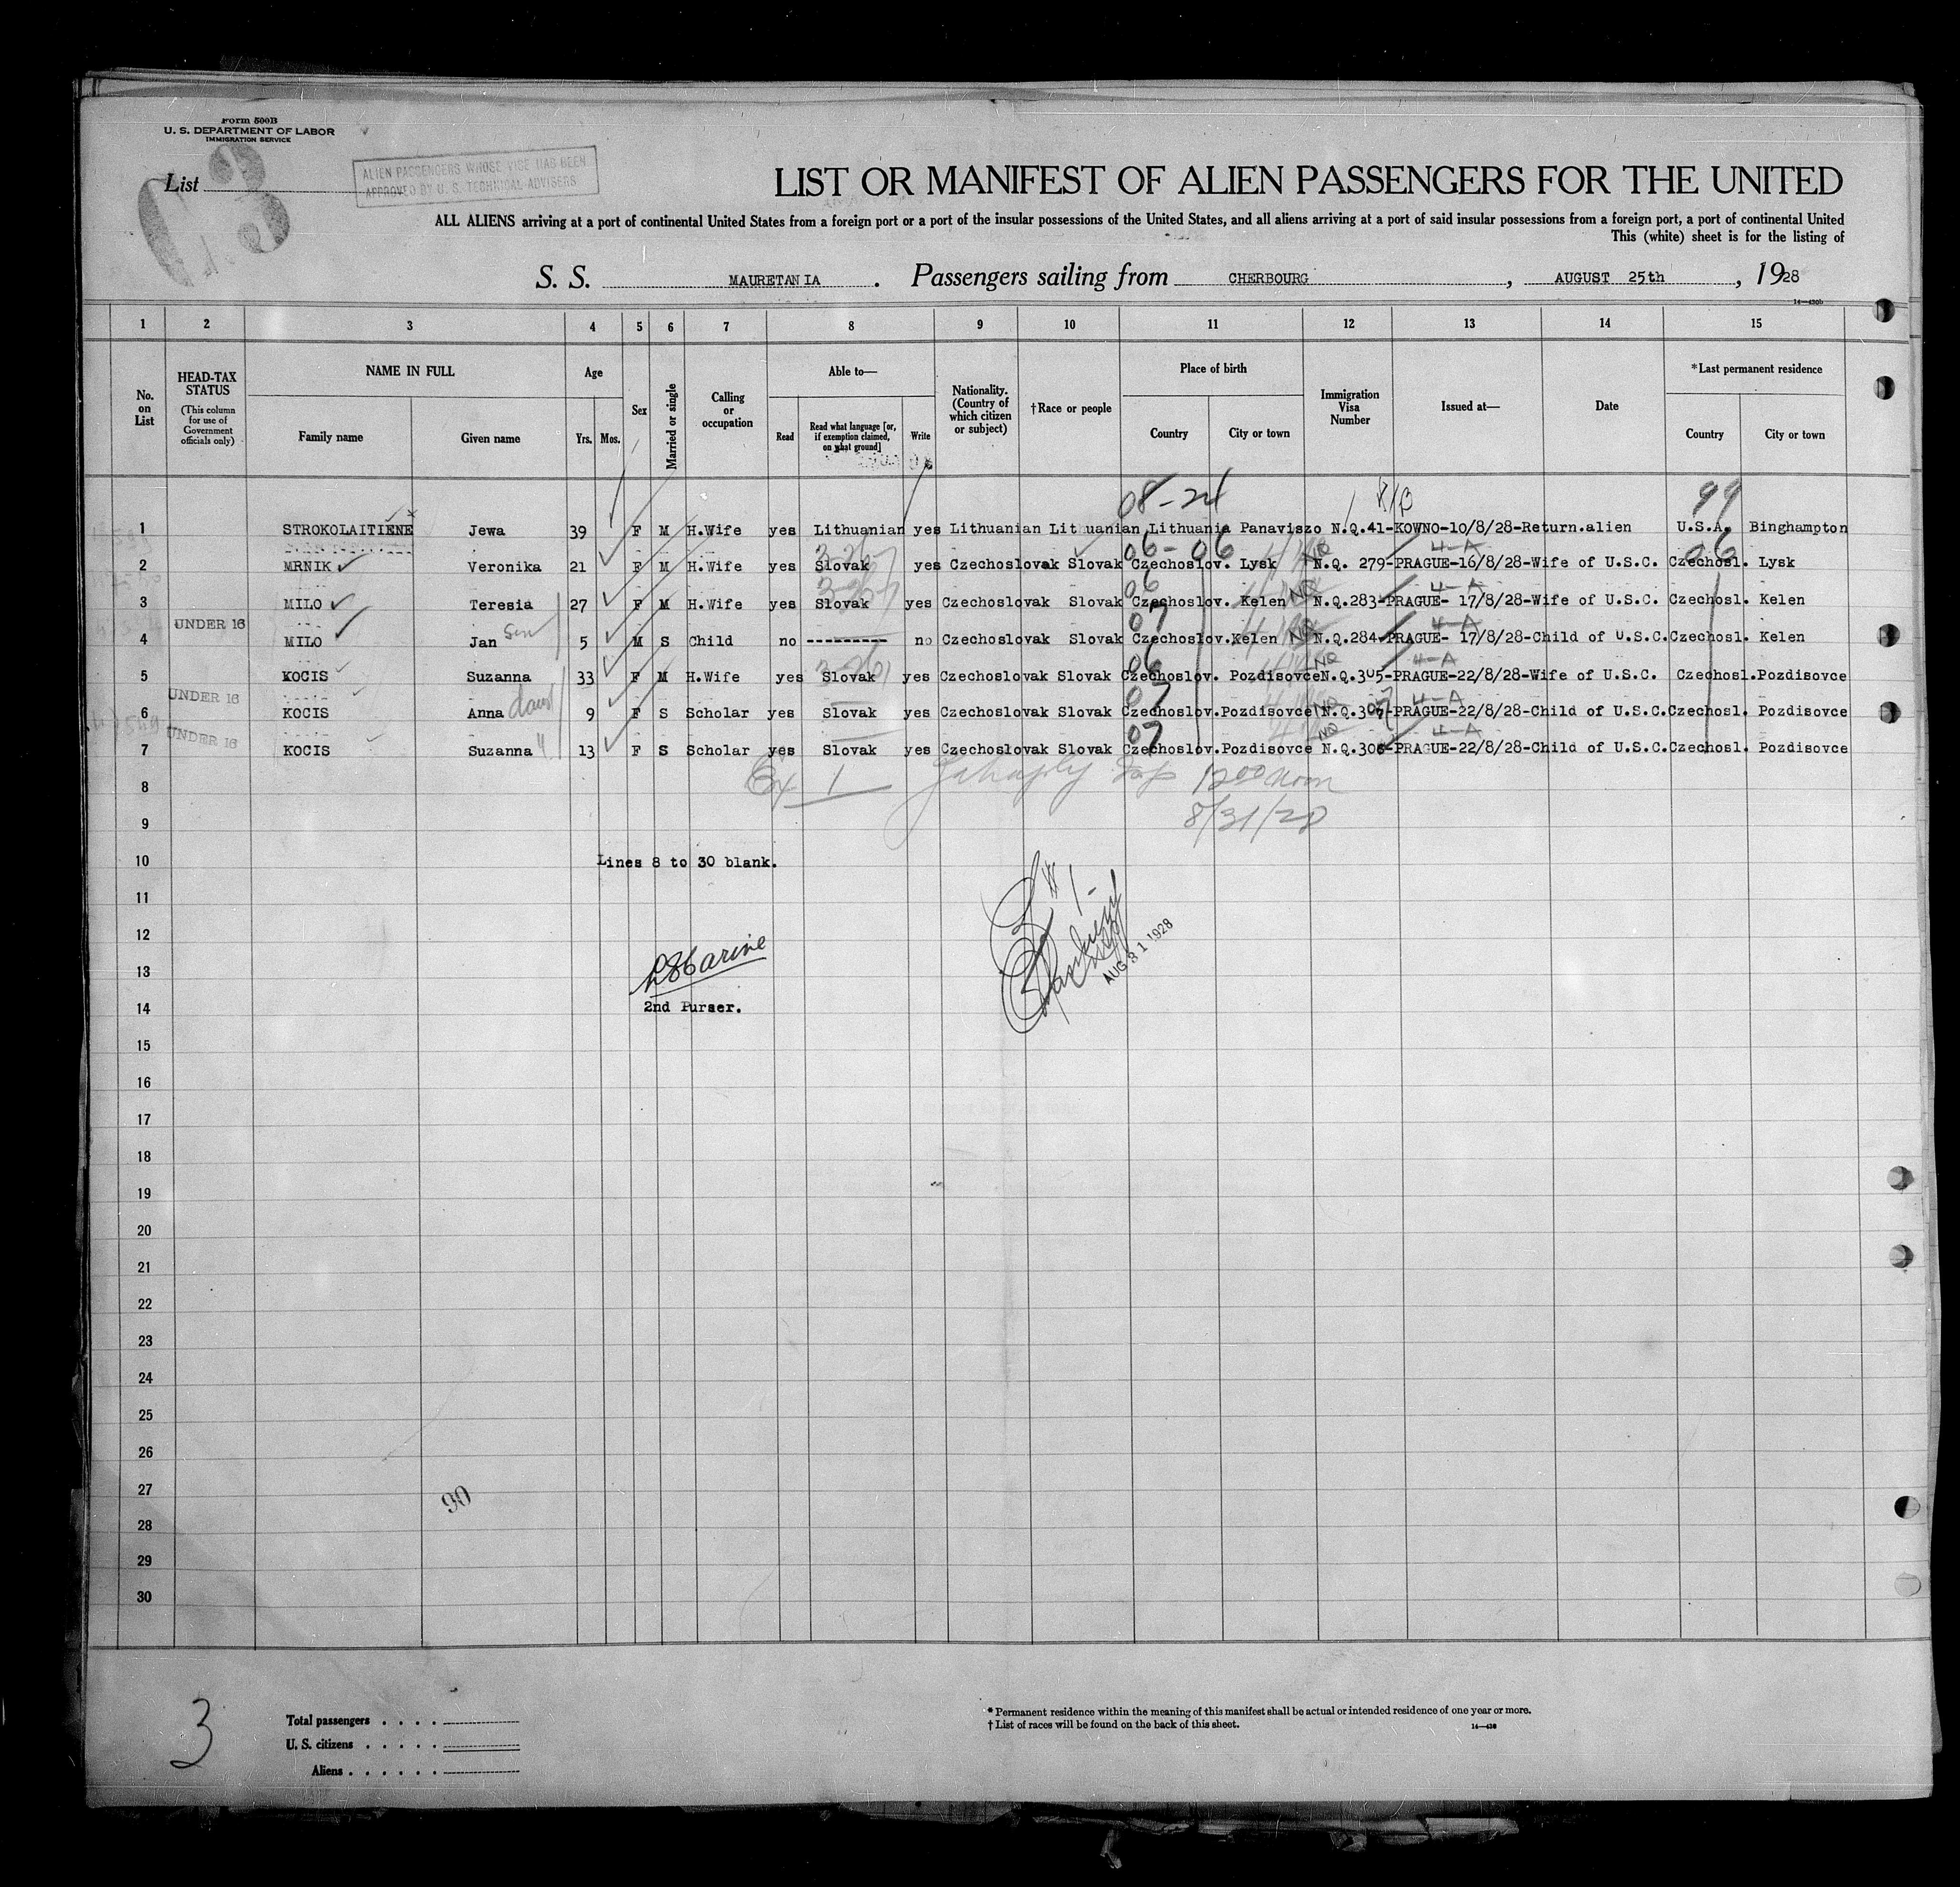 Form 500B
U. S. DEPARTMENT OF LABOR
IMMIGRATION SERVICE
List
ALIEN PASSENGERS WHOSE VISE HAS BEEN
APPROVED BY U. S. TECHNICAL ADVISERS
LIST OR MANIFEST OF ALIEN PASSENGERS FOR THE UNITED
ALL ALIENS arriving at a port of continental United States from a foreign port or a port of the insular possessions of the United States, and all aliens arriving at a port of said insular possessions from a foreign port, a port of continental United
This (white) sheet is for the listing of
S. S. MAURETANIA. Passengers sailing from CHERBOURG, AUGUST 25th, 1928
14—430b
1 2 3 4 5 6 7 8 9 10 11 12 13 14 15
No. on List
HEAD-TAX STATUS
(This column for use of Government officials only)
NAME IN FULL
Family name
Given name
Age
Yrs.
Mos.
Sex
Married or single
Calling or occupation
Able to—
Read
Read what language [or, if exemption claimed, on what ground]
Write
Nationality. (Country of which citizen or subject)
†Race or people
Place of birth
Country
City or town
Immigration Visa Number
Issued at—
Date
*Last permanent residence
Country
City or town
08-24 99
1 STROKOLAITIENE Jewa 39 F M H.Wife yes Lithuanian yes Lithuanian Lithuanian Lithuania Panaviszo N.Q.41-KOWNO-10/8/28-Return.alien U.S.A. Binghampton
3-26 06-06 NQ 4-A 06
2 MRNIK Veronika 21 F M H.Wife yes Slovak yes Czechoslovak Slovak Czechoslov. Lysk N.Q. 279-PRAGUE-16/8/28-Wife of U.S.C. Czechosl. Lysk
06 NQ 4-A
3 MILO Teresia 27 F M H.Wife yes Slovak yes Czechoslovak Slovak Czechoslov. Kelen N.Q.283-PRAGUE- 17/8/28-Wife of U.S.C. Czechosl. Kelen
UNDER 16 son 07 NQ 4-A
4 MILO Jan 5 M S Child no --------- no Czechoslovak Slovak Czechoslov.Kelen N.Q.284-PRAGUE- 17/8/28-Child of U.S.C.Czechosl. Kelen
06 NQ 4-A
5 KOCIS Suzanna 33 F M H.Wife yes Slovak yes Czechoslovak Slovak Czechoslov. Pozdisovce N.Q.305-PRAGUE-22/8/28-Wife of U.S.C. Czechosl.Pozdisovce
UNDER 16 07 4-A
6 KOCIS Anna 9 F S Scholar yes Slovak yes Czechoslovak Slovak Czechoslov.Pozdisovce N.Q.307-PRAGUE-22/8/28-Child of U.S.C.Czechosl. Pozdisovce
UNDER 16 07 NQ 4-A
7 KOCIS Suzanna " 13 F S Scholar yes Slovak yes Czechoslovak Slovak Czechoslov.Pozdisovce N.Q.306-PRAGUE-22/8/28-Child of U.S.C.Czechosl. Pozdisovce
1200 Noon
8
8/31/28
9
10 Lines 8 to 30 blank.
11
12
AUG 31 1928
13
14 2nd Purser.
15
16
17
18
19
20
21
22
23
24
25
26
27
90
28
29
30
3
Total passengers
U. S. citizens
Aliens
* Permanent residence within the meaning of this manifest shall be actual or intended residence of one year or more.
† List of races will be found on the back of this sheet.
14—430